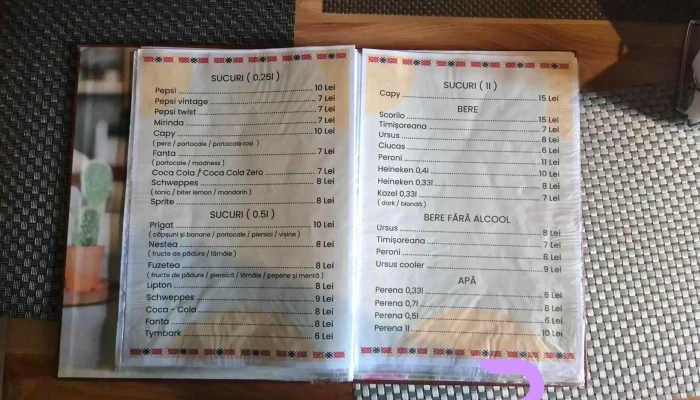 SUCURI ( 0,25l )
Pepsi 10 Lei
Pepsi vintage 7 Lei
Pepsi twist 7 Lei
Mirinda 7 Lei
Capy 10 Lei
( pere / portocale / portocale roșii )
Fanta 7 Lei
( portocale / madness )
Coca Cola / Coca Cola Zero 7 Lei
Schweppes 8 Lei
( tonic / biter lemon / mandarin )
Sprite 8 Lei
SUCURI ( 0.5l )
Prigat 10 Lei
( căpșuni și banane / portocale / piersici / vișine )
Nestea 8 Lei
( fructe de pădure / lămâie )
Fuzetea 8 Lei
( fructe de pădure / piersică / lămâie / pepene și mentă )
Lipton 8 Lei
Schweppes 9 Lei
Coca - Cola 8 Lei
Fanta 8 Lei
Tymbark 6 Lei
SUCURI ( 1l )
Capy 15 Lei
BERE
Scorilo 15 Lei
Timișoreana 7 Lei
Ursus 8 Lei
Ciucas 6 Lei
Peroni 11 Lei
Heineken 0,4l 10 Lei
Heineken 0,33l 8 Lei
Kozel 0,33l 7 Lei
( dark / blondă )
BERE FĂRĂ ALCOOL
Ursus 8 Lei
Timișoreana 7 Lei
Peroni 8 Lei
Ursus cooler 9 Lei
APĂ
Perena 0,33l 6 Lei
Perena 0,7l 8 Lei
Perena 0,5l 6 Lei
Perena 1l 10 Lei